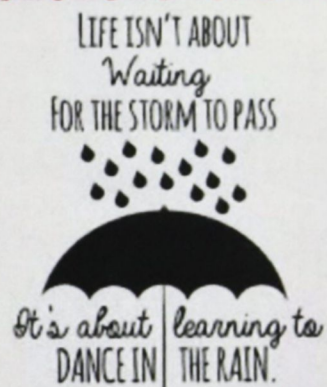 LIFE ISN'T ABOUT
Waiting
FOR THE STORM TO PASS
It's about learning to
DANCE IN THE RAIN.